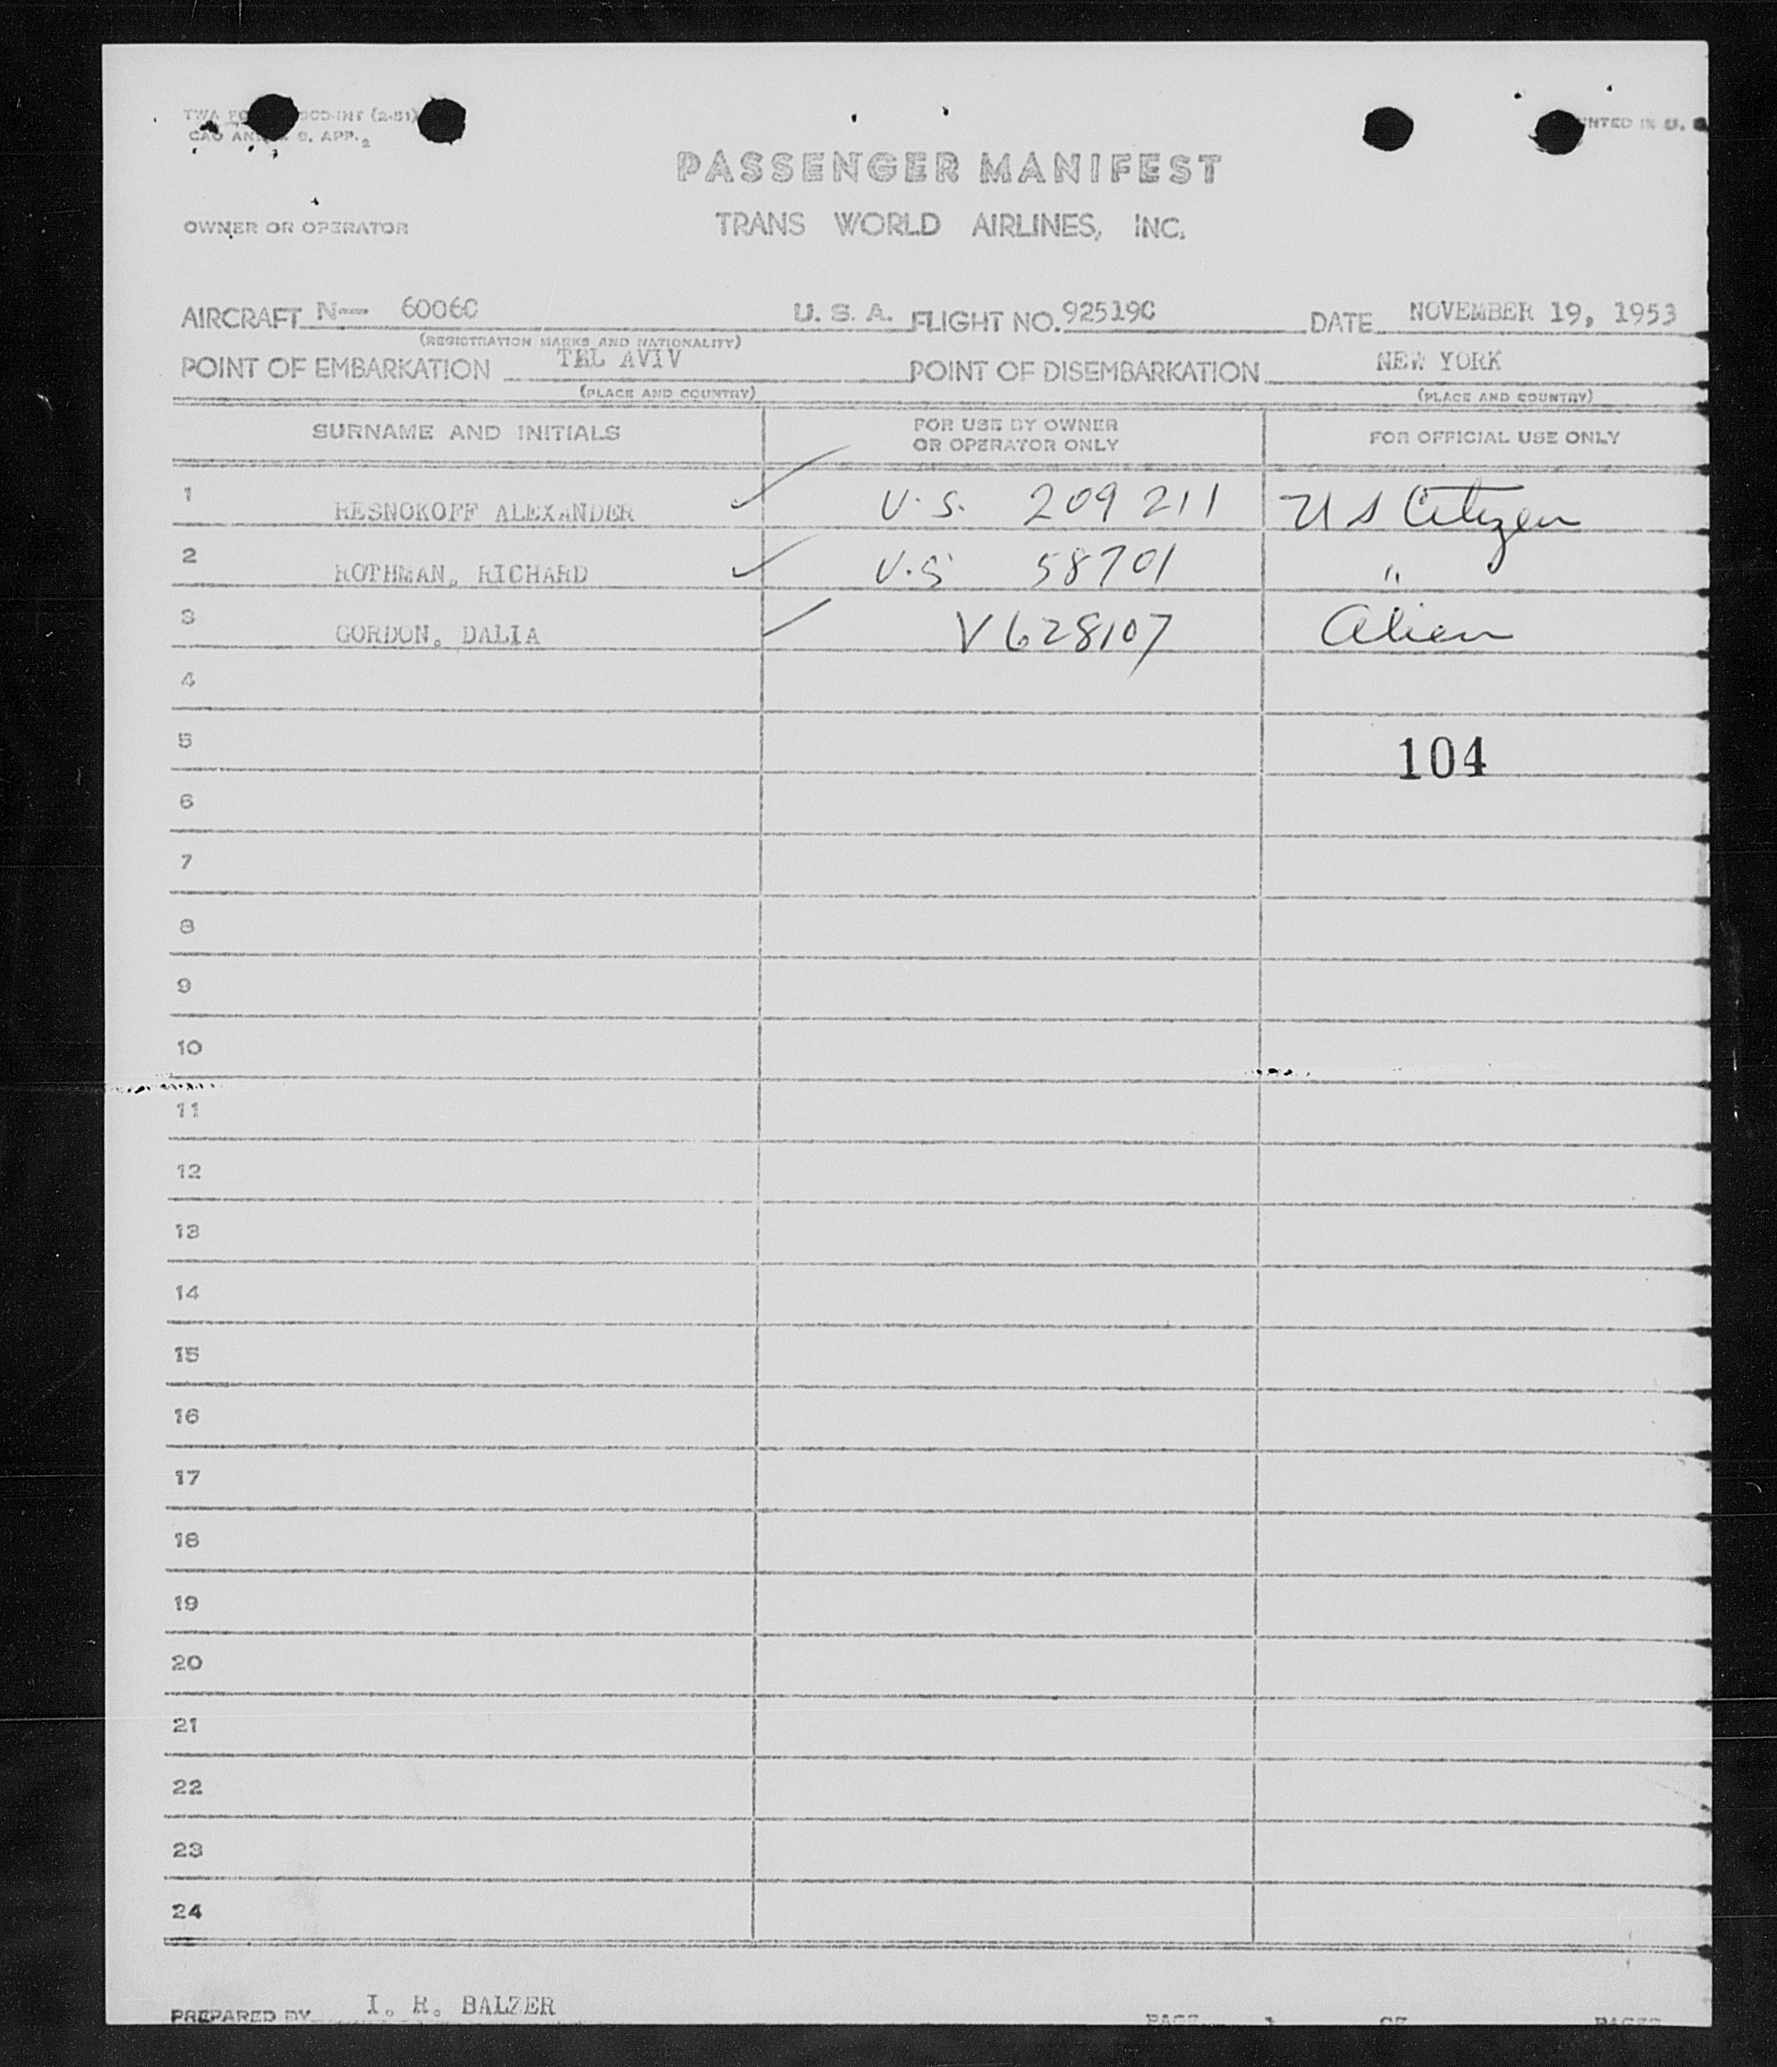 TWA (2-51)
CAO S. APP. 2
PASSENGER MANIFEST
OWNER OR OPERATOR TRANS WORLD AIRLINES, INC.
AIRCRAFT N-- 6006C U. S. A. FLIGHT NO. 92519C DATE NOVEMBER 19, 1953
(REGISTRATION MARKS AND NATIONALITY)
POINT OF EMBARKATION TEL AVIV POINT OF DISEMBARKATION NEW YORK
(PLACE AND COUNTRY) (PLACE AND COUNTRY)
SURNAME AND INITIALS FOR USE BY OWNER OR OPERATOR ONLY FOR OFFICIAL USE ONLY
1 RESNOKOFF ALEXANDER U.S. 209211 US Citizen
2 ROTHMAN, RICHARD U.S 58701 "
3 GORDON, DALIA V628107 Alien
4
5 104
6
7
8
9
10
11
12
13
14
15
16
17
18
19
20
21
22
23
24
PREPARED BY I. R. BALZER